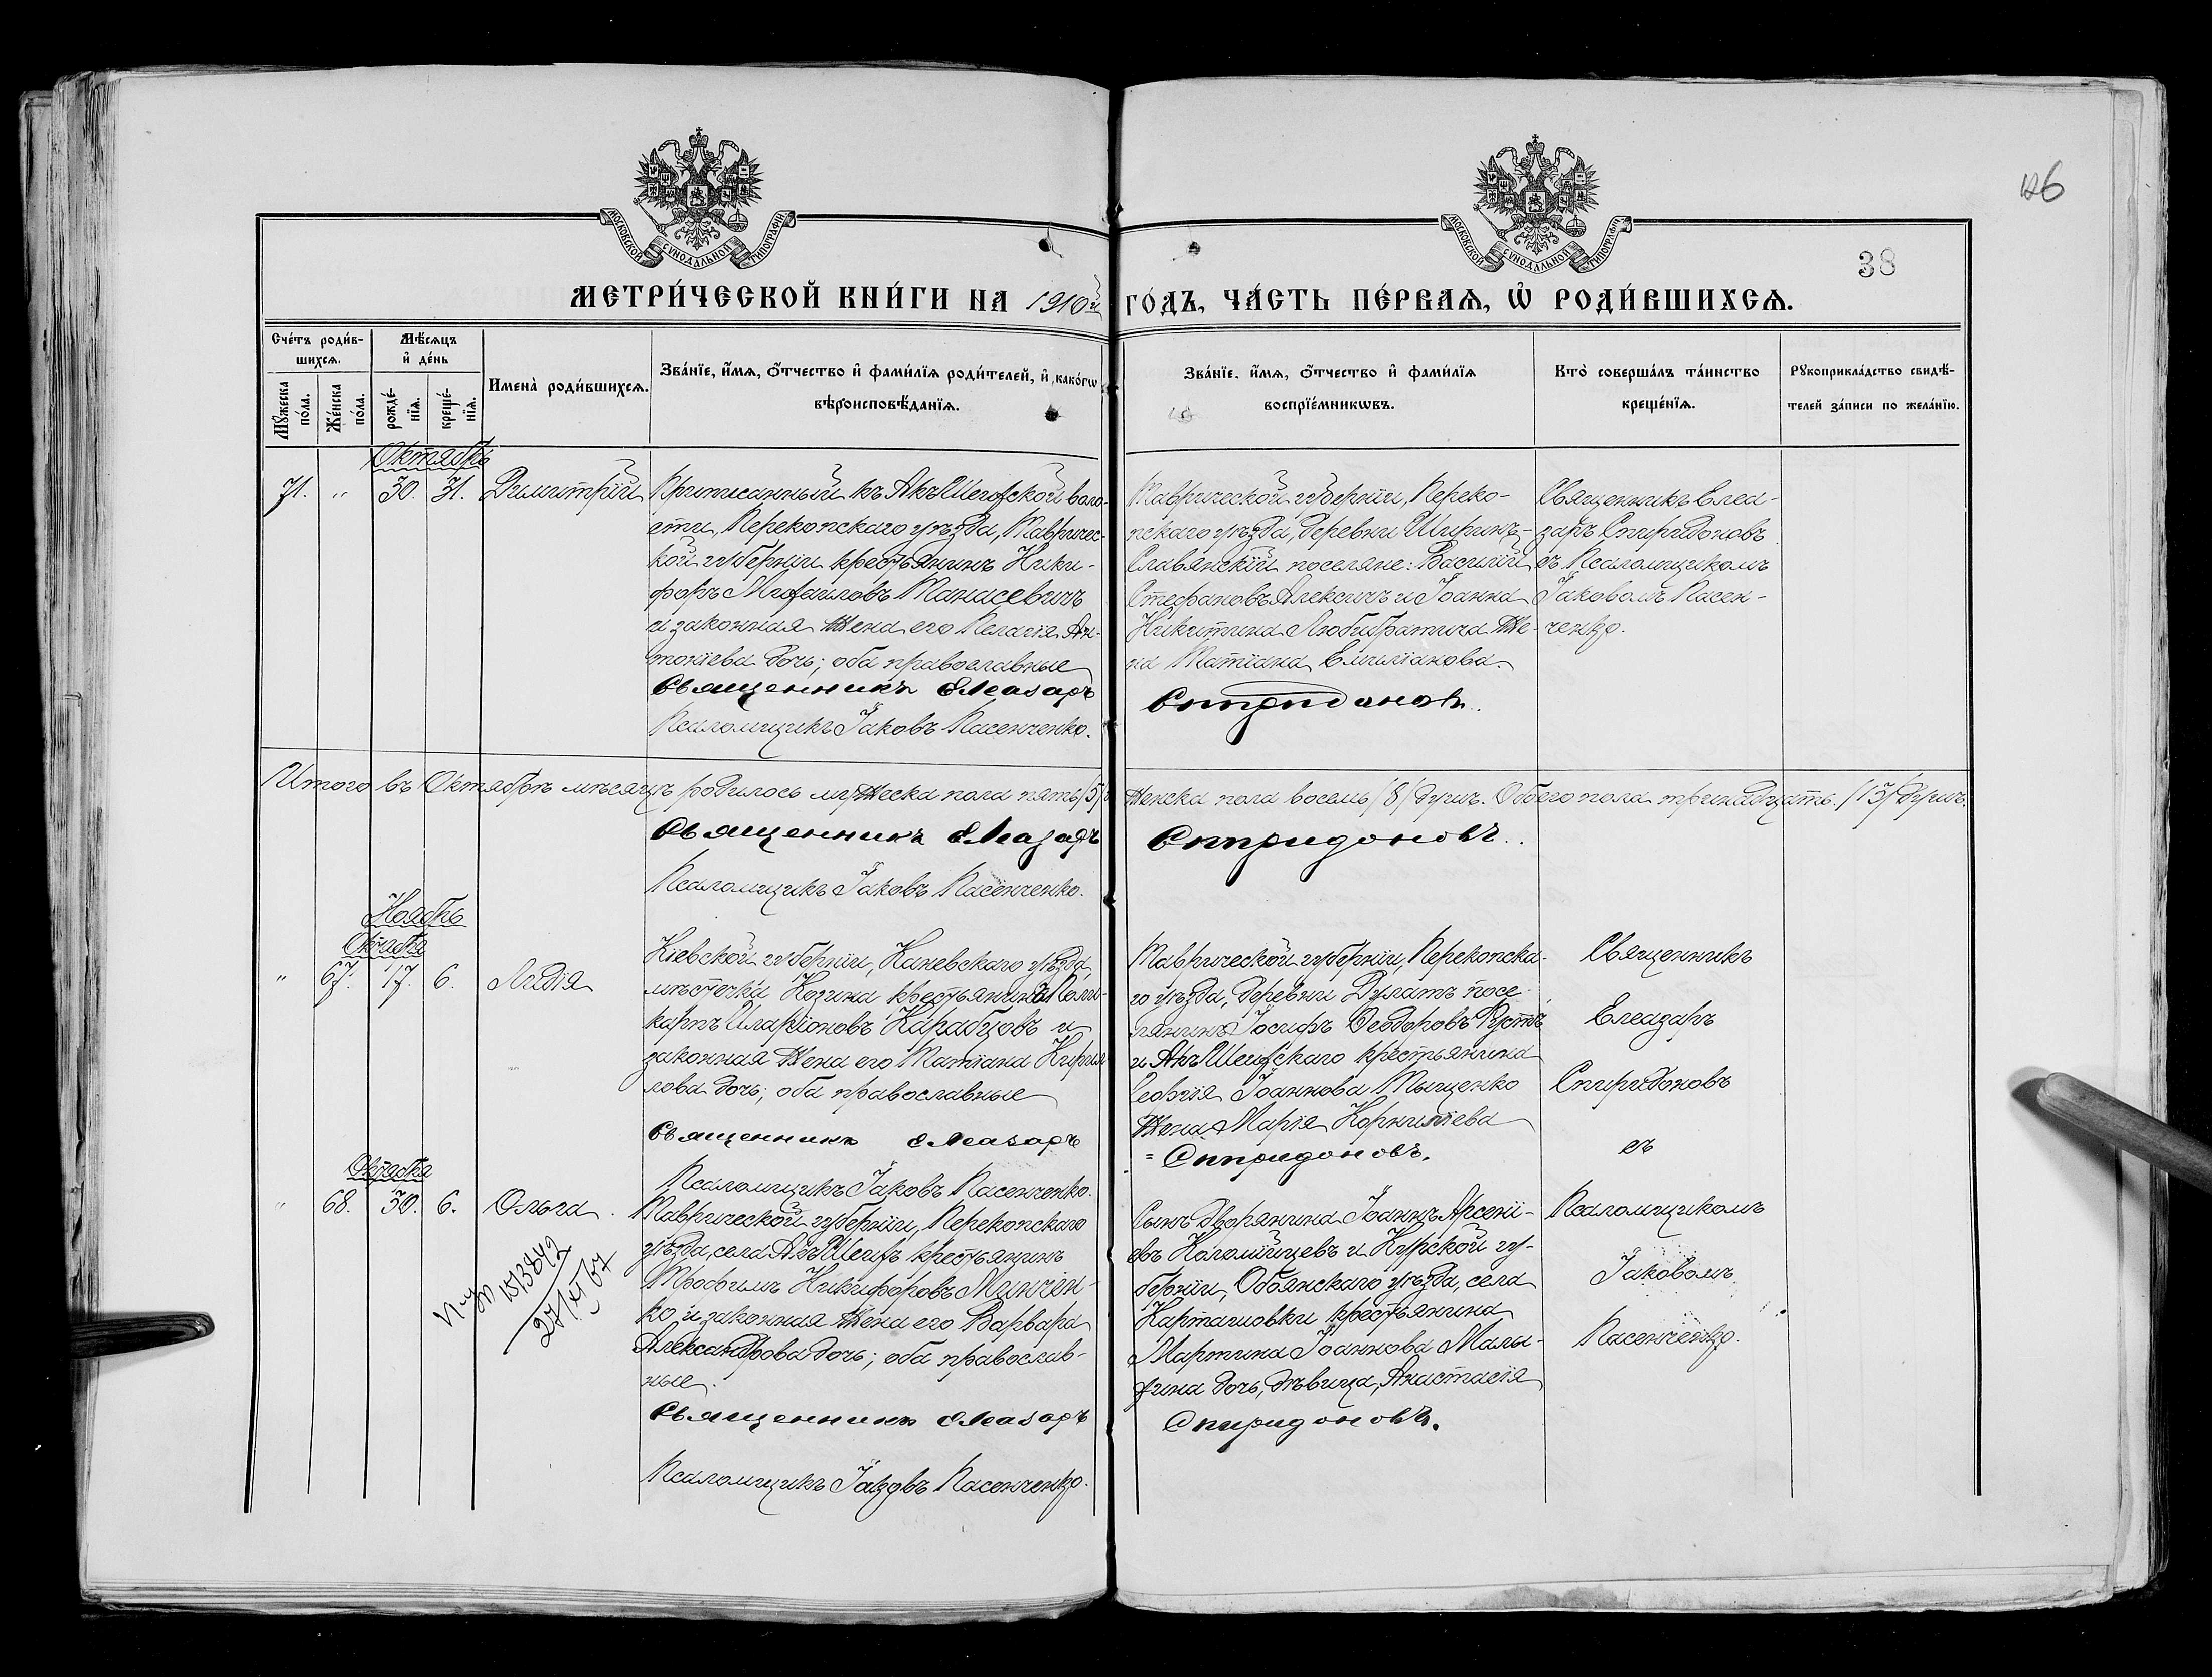 126
38
МОСКОВСКОЙ СѴНОДАЛЬНОЙ ТИПОГРАФІИ
МОСКОВСКОЙ СѴНОДАЛЬНОЙ ТИПОГРАФІИ
МЕТРИ́ЧЕСКОЙ КНИ́ГИ НА 1910й ГО́ДЪ, ЧА́СТЬ ПЕ́РВАѦ, Ѿ РОДИ́ВШИХСѦ.
Сче́тъ роди́в-
шихсѧ.
Мꙋ́жеска по́ла.
Же́нска по́ла.
Мѣ́сѧцъ
и҆ де́нь
рожде́-
нїѧ.
креще́-
нїѧ.
Имена̀ роди́вшихсѧ.
Зва́нїе, и҆́мѧ, ѻ҆́тчество и҆ фами́лїѧ роди́телей, и҆ како́гѡ
вѣроисповѣ́данїѧ.
Зва́нїе, и҆́мѧ, ѻ҆́тчество и҆ фами́лїѧ
воспрїе́мникѡвъ.
Кто̀ соверша́лъ та́инство
креще́нїѧ.
Рꙋкоприкла́дство свидѣ́-
телей за́писи по жела́нїю.
Октябрь
71. " 30. 31. Димитрій
Приписанный къ Акъ Шехской воло-
сти, Перекопскаго уѣзда, Тавричес-
кой губерніи крестьянинъ Ники-
форъ Михаиловъ Танасевичъ
и законная жена его Пелагія Ан-
тоніева дочь; оба православные
Священникъ Елеазаръ
Псаломщикъ Іаковъ Пасенченко.
Таврической губерніи, Переко-
пскаго уѣзда, деревни Ширинъ-
Славянскій поселяне: Василій
Стефановъ Алексичъ и Іоанна
Никитина Любибратича же-
на Татіана Емиліанова.
Спиридоновъ.
Священникъ Елеа-
заръ Спиридоновъ
съ Псаломщикомъ
Іаковомъ Пасен-
ченко.
Итого въ Октябрѣ мѣсяцѣ родилось мужеска пола пять /5/ женска пола восемь /8/ душъ. Обоего пола тринадцать /13/ душъ.
Священникъ Елеазаръ Спиридоновъ.
Псаломщикъ Іаковъ Пасенченко.
Ноябрь
Октября
" 67. 17. 6. Лидія
Кіевской губерніи, Каневскаго уѣзда,
мѣстечка Козина крестьянинъ Поли-
карпъ Иларіоновъ Карабцовъ и
законная жена его Татіана Кирил-
лова дочь; оба православные
Священникъ Елеазаръ
Псаломщикъ Іаковъ Пасенченко.
Таврической губерніи, Перекопска-
го уѣзда, деревни Дулатъ посе-
лянинъ Іосифъ Ѳеодоровъ
и Акъ Шехскаго крестьянина
Георгія Іоаннова Тыщенко
жена Марія Корниліева
Спиридоновъ.
Священникъ
Елеазаръ
Спиридоновъ
съ
Псаломщикомъ
Іаковомъ
Пасенченко.
Октября
" 68. 30. 6. Ольга.
Таврической губерніи, Перекопскаго
уѣзда, села Акъ Шехъ крестьянинъ
Трофимъ Никифоровъ Минчен-
ко и законная жена его Варвара
Александрова дочь; оба православ-
ные.
Священникъ Елеазаръ
Псаломщикъ Іаковъ Пасенченко.
Сынъ дворянина Іоаннъ Арсені-
евъ Коломійцевъ и Курской гу-
берніи, Обоянскаго уѣзда, села
Карташовки крестьянина
Мартина Іоаннова Малы-
хина дочь, дѣвица, Анастасія
Спиридоновъ.
1513842
27/XI 67